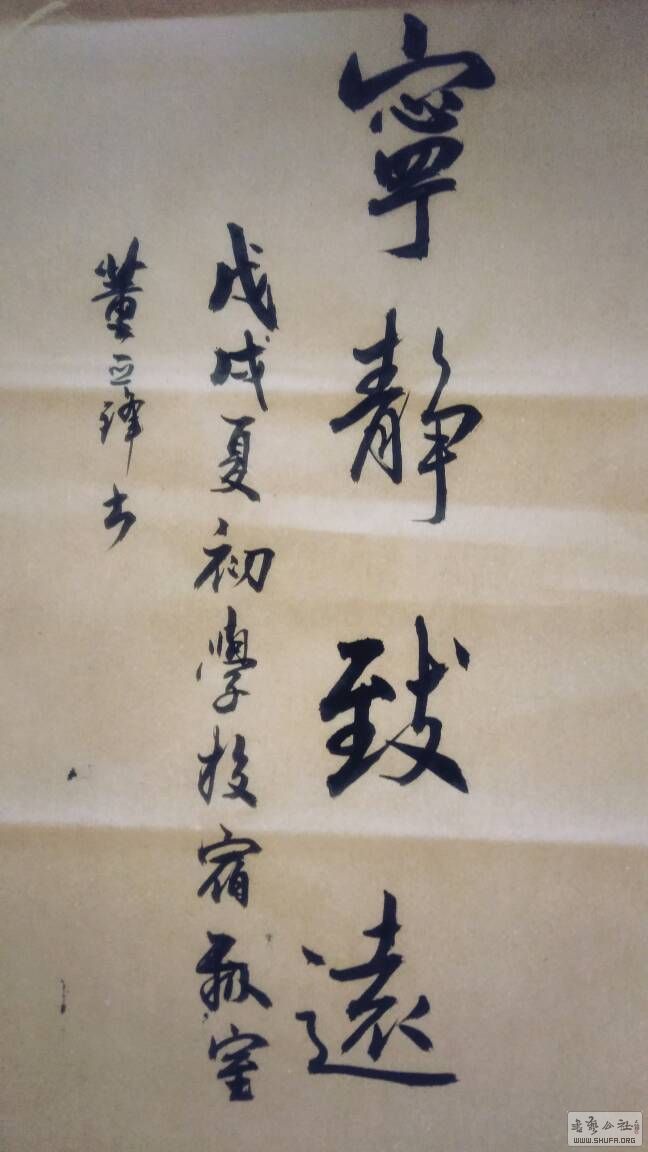 寧靜致遠
戊戌夏初學校宿教室
董正鋒书
书艺公社
WWW.SHUFA.ORG